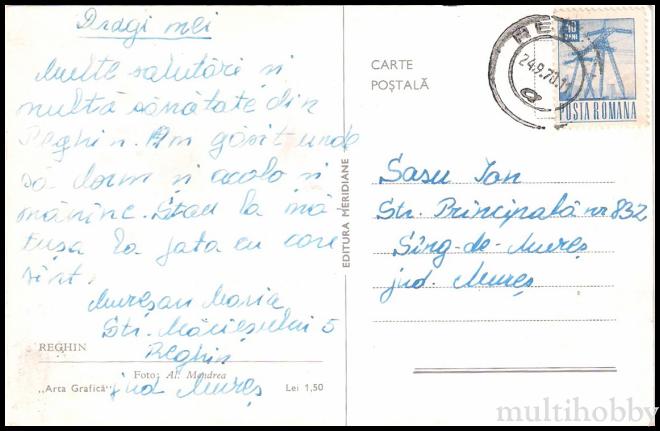 Dragi mei
Multe salutări și
multă sănătate din
Reghin. Am găsit unde
să dorm și acolo și
mănînc. Stau la mă
tușa la fata cu care
sînt.
Mureșan Maria
Str. Măcieșului 5
Reghin
jud Mureș
REGHIN
Foto: Al. Mendrea
„Arta Grafică“
Lei 1,50
EDITURA MERIDIANE
CARTE
POȘTALĂ
24.9.70.11
40
BANI
POSTA ROMANA
Sasu Ion
Str. Principală nr 832
Sîng-de-Mureș
jud. Mureș
multihobby